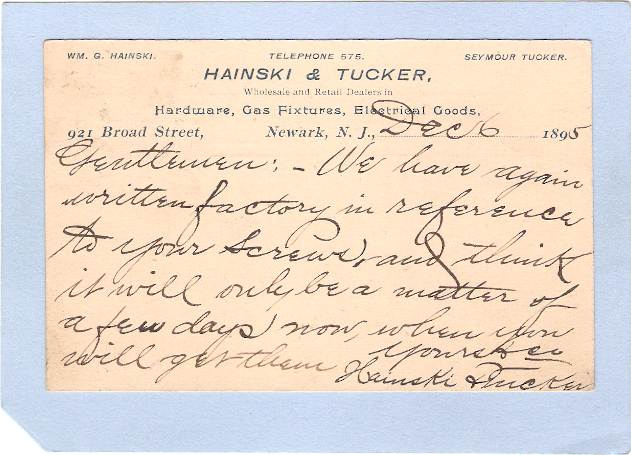 WM. G. HAINSKI. TELEPHONE 575. SEYMOUR TUCKER.
HAINSKI & TUCKER,
Wholesale and Retail Dealers in
Hardware, Gas Fixtures, Electrical Goods,
921 Broad Street, Newark, N. J., Dec 6 1895
Gentlemen: - We have again
written factory in reference
to your screws, and think
it will only be a matter of
a few days now, when you
will get them Yours &c
Hainski & Tucker